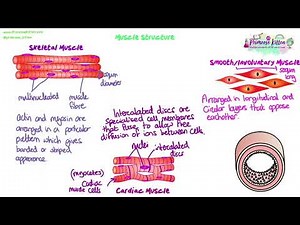 Muscle Structure
Primrose Kitten
Skeletal Muscle
50μm diameter
multinucleated
muscle fibre
Actin and myosin are
arranged in a particular
pattern which gives
banded or striped
appearance
Intercalated discs are
specialised cell membranes
that fuse to allow free
diffusion of ions between cells.
nuclei
intercalated discs
(myocytes)
Cardiac muscle cells
Cardiac Muscle
Smooth/Involuntary Muscle
long
Arranged in longitudinal and
Circular layers that oppose
eachother.